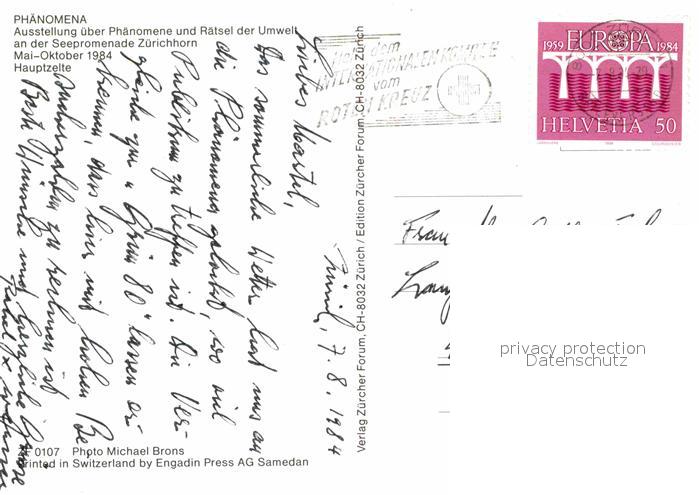 PHÄNOMENA
Ausstellung über Phänomene und Rätsel der Umwelt
an der Seepromenade Zürichhorn
Mai–Oktober 1984
Hauptzelte
Zürich, 7. 8. 1984
Das sommerliche Wetter hat uns an
die Phänomena gelockt, wo viel
Publikum zu treffen ist. Die Ver-
gleiche zur "Grün 80" lassen er-
kennen, dass hier mit hohen Be-
sucherzahlen zu rechnen ist.
Beste Wünsche und herzliche Grüsse
ZF 0107 Photo Michael Brons
Printed in Switzerland by Engadin Press AG Samedan
Verlag Zürcher Forum, CH-8032 Zürich / Edition Zürcher Forum, CH-8032 Zürich
INTERNATIONALEN KOMITEE
vom
ROTEN KREUZ
1959 EUROPA 1984
HELVETIA 50
Frau
privacy protection
Datenschutz